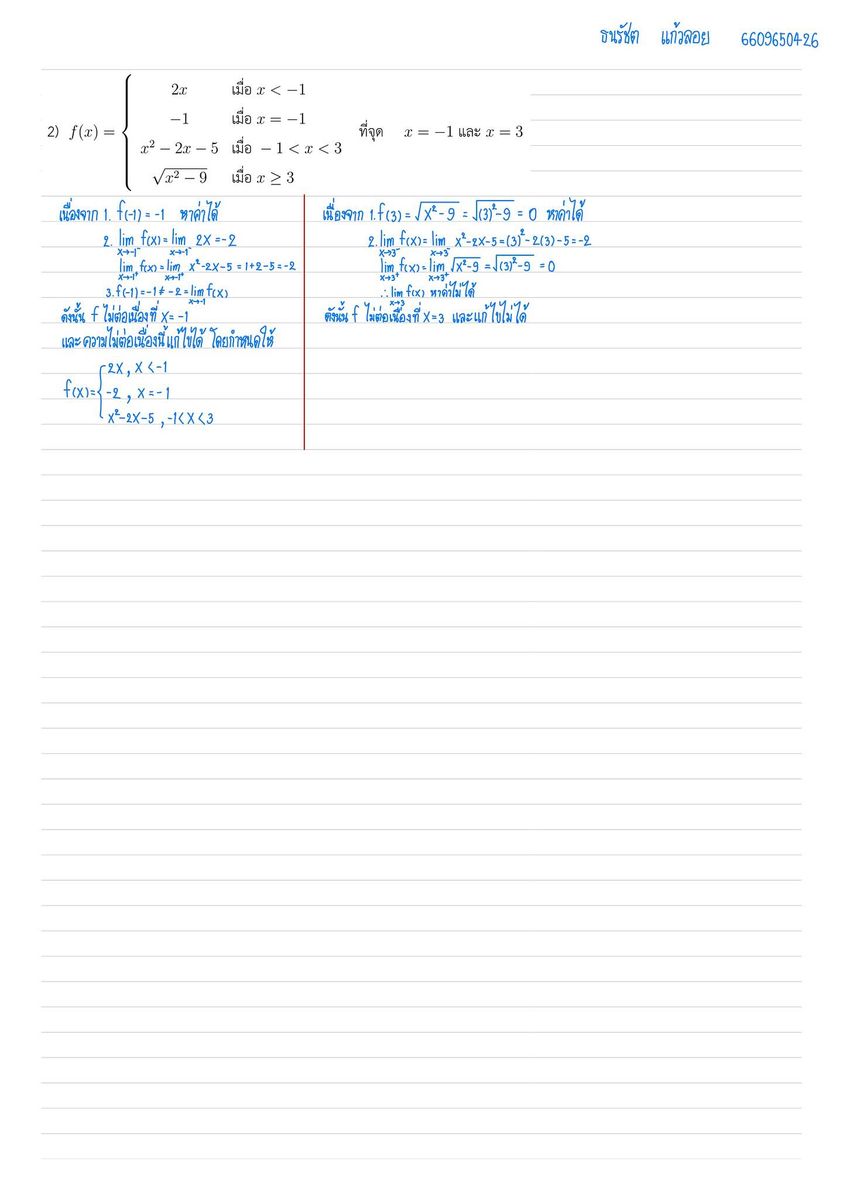 ธนรัชต แก้วลอย 6609650426
2) f(x) = { 2x เมื่อ x < −1
−1 เมื่อ x = −1
x² − 2x − 5 เมื่อ − 1 < x < 3
√(x² − 9) เมื่อ x ≥ 3
ที่จุด x = −1 และ x = 3
เนื่องจาก 1. f(-1) = -1 หาค่าได้
2. lim x→-1⁻ f(x) = lim x→-1⁻ 2x = -2
lim x→-1⁺ f(x) = lim x→-1⁺ x²-2x-5 = 1+2-5 = -2
3. f(-1) = -1 ≠ -2 = lim x→-1 f(x)
ดังนั้น f ไม่ต่อเนื่องที่ x = -1
และ ความไม่ต่อเนื่องนี้แก้ไขได้ โดยกำหนดให้
f(x) = { 2x , x < -1
-2 , x = -1
x²-2x-5 , -1 < x < 3
เนื่องจาก 1. f(3) = √(x²-9) = √((3)²-9) = 0 หาค่าได้
2. lim x→3⁻ f(x) = lim x→3⁻ x²-2x-5 = (3)²-2(3)-5 = -2
lim x→3⁺ f(x) = lim x→3⁺ √(x²-9) = √((3)²-9) = 0
∴ lim x→3 f(x) หาค่าไม่ได้
ดังนั้น f ไม่ต่อเนื่องที่ x = 3 และแก้ไขไม่ได้